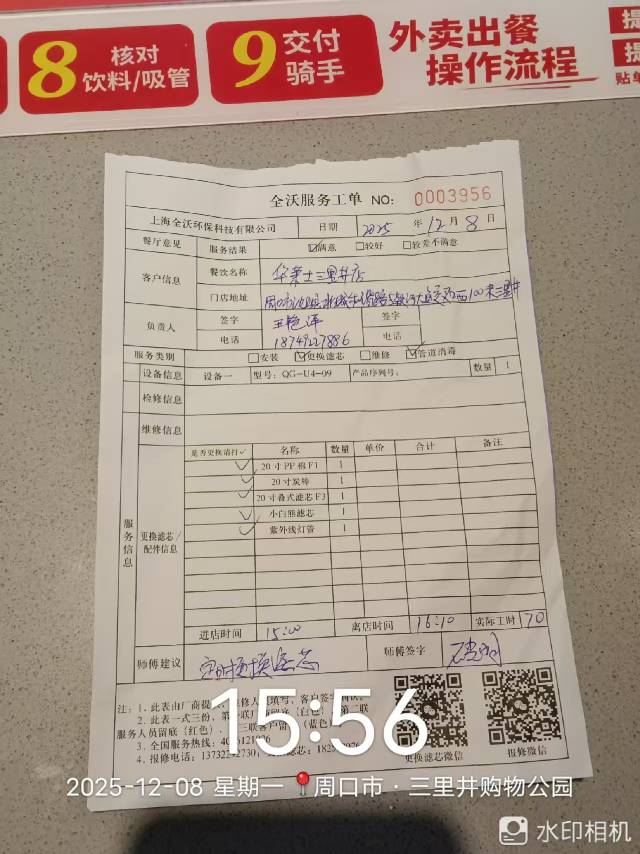 8 核对 饮料/吸管
9 交付 骑手
外卖出餐 操作流程
全沃服务工单 NO: 0003956
上海全沃环保科技有限公司 日期 2025 年 12 月 8 日
餐厅意见 服务结果 ☑满意 □较好 □较差不满意
客户信息 餐饮名称 华莱士三里井店
门店地址
负责人 签字 签字
电话 18749227886 电话
服务类别 □安装 ☑更换滤芯 □维修 ☑管道消毒
设备信息 设备一 型号: QG-U4-09 产品序列号: 数量 1
检修信息
维修信息
服务信息 更换滤芯/配件信息
是否更换请打✓ 名称 数量 单价 合计 备注
✓ 20寸PP棉F1 1
✓ 20寸炭棒 1
✓ 20寸叠式滤芯F3 1
✓ 小白熊滤芯 1
✓ 紫外线灯管 1
进店时间 15:00 离店时间 16:10 实际工时 70
师傅建议 定时更换滤芯 师傅签字
注: 1、此表由厂商提
2、此表一式三份,
服务人员留底(红色)
3、全国服务热线:
4、报修电话:
更换滤芯微信 报修微信
15:56
2025-12-08 星期一 周口市·三里井购物公园
水印相机